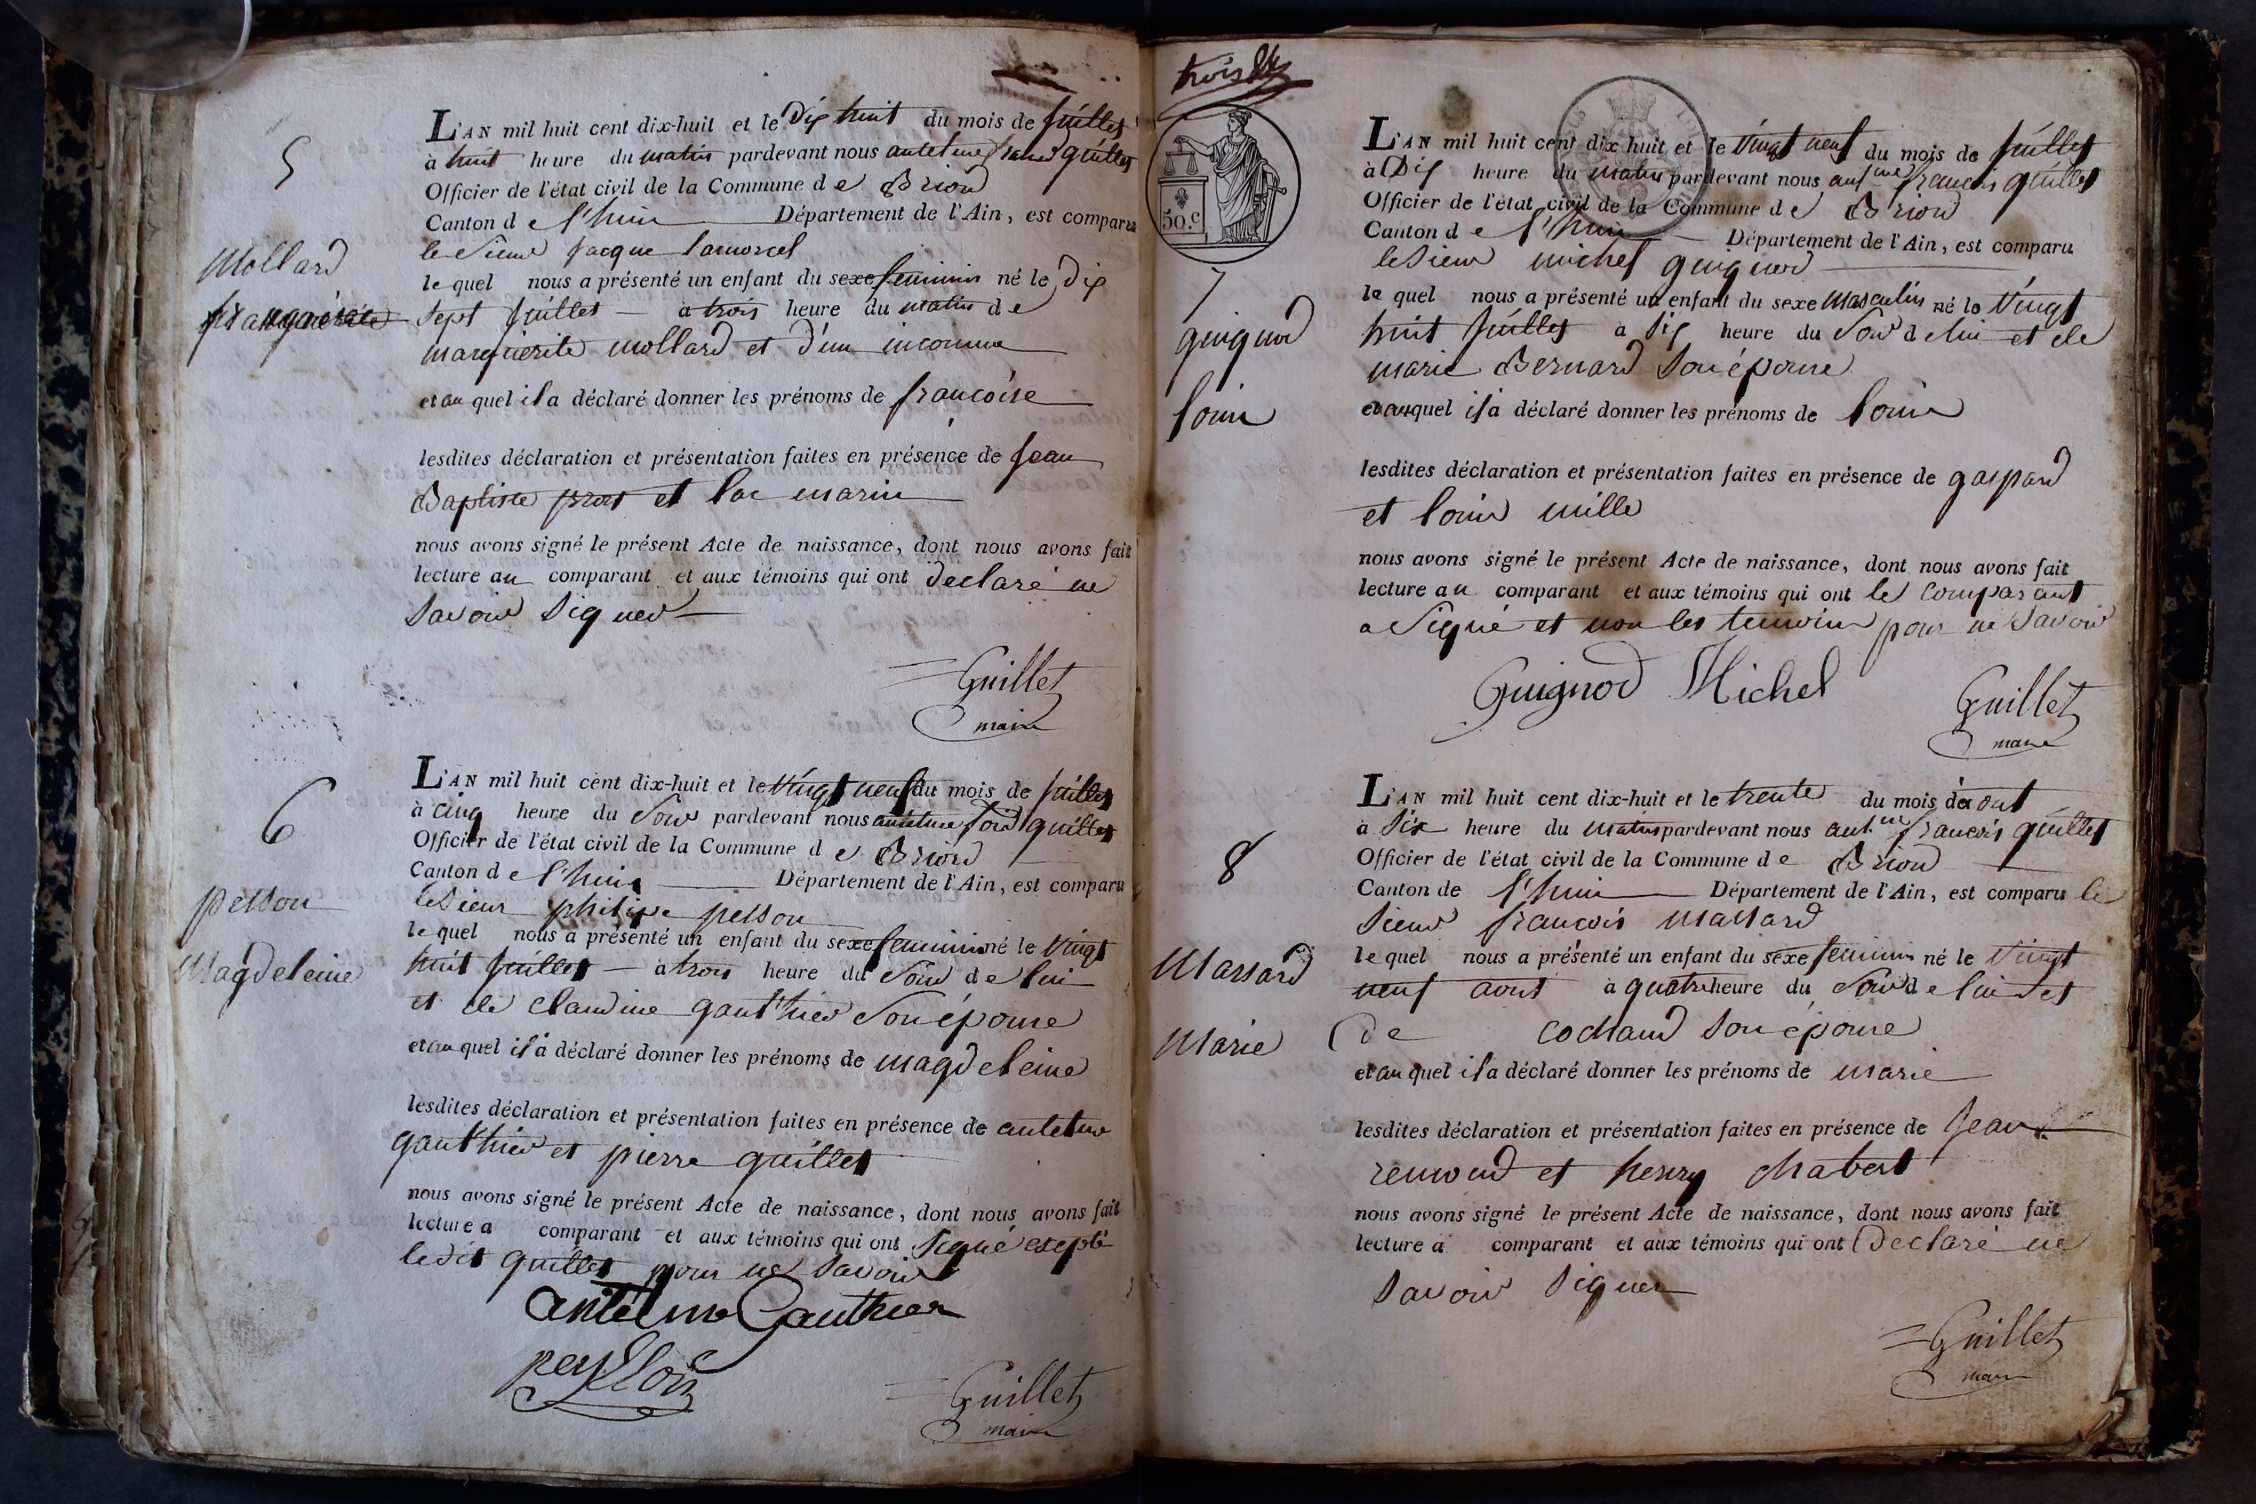 5
Mollard
françoise
L'AN mil huit cent dix-huit et le Dix huit du mois de Juillet
à huit heure du matin pardevant nous antelme françois guillet
Officier de l'état civil de la Commune de Briord
Canton de l'huis Département de l'Ain, est comparu
le Sieur Jacque lamorcel
le quel nous a présenté un enfant du sexe feminin né le Dix
Sept Juillet à trois heure du matin de
marguerite mollard et D'un inconnu
et au quel il a déclaré donner les prénoms de françoise
lesdites déclaration et présentation faites en présence de Jean
Baptiste prost et marin
nous avons signé le présent Acte de naissance, dont nous avons fait
lecture au comparant et aux témoins qui ont declaré ne
Savoir Signer
Guillet
maire
6
pelson
Magdeleine
L'AN mil huit cent dix-huit et le Vingt neuf du mois de Juillet
à cinq heure du Soir pardevant nous antelme guillet
Officier de l'état civil de la Commune de Briord
Canton de l'huis Département de l'Ain, est comparu
le Sieur philipe pelson
le quel nous a présenté un enfant du sexe feminin né le Vingt
huit Juillet à trois heure du Soir de lui
et de claudine gauthier Son épouse
et au quel il a déclaré donner les prénoms de magdeleine
lesdites déclaration et présentation faites en présence de antelme
gauthier et pierre guillet
nous avons signé le présent Acte de naissance, dont nous avons fait
lecture a comparant et aux témoins qui ont Signé excepté
ledit guillet pour ne Savoir
antelme Gauthier
Guillet
maire
trois
50.c
7
guignod
louis
L'AN mil huit cent dix huit et le Vingt neuf du mois de Juillet
à Dix heure du matin pardevant nous ant.me francois guillet
Officier de l'état civil de la Commune de Briord
Canton de l'huis Département de l'Ain, est comparu
le Sieur michel guignod
le quel nous a présenté un enfant du sexe masculin né le Vingt
huit Juillet à Six heure du Soir de lui et de
marie Bernard Son épouse
et auquel il a déclaré donner les prénoms de louis
lesdites déclaration et présentation faites en présence de gaspard
et louis mille
nous avons signé le présent Acte de naissance, dont nous avons fait
lecture au comparant et aux témoins qui ont le comparant
a Signé et non les temoins pour ne Savoir
Guignod Michel
Guillet
maire
8
Massard
Marie
L'AN mil huit cent dix-huit et le trente du mois de aout
à Six heure du matin pardevant nous ant.me francois guillet
Officier de l'état civil de la Commune de Briord
Canton de l'huis Département de l'Ain, est comparu le
Sieur francois massard
le quel nous a présenté un enfant du sexe feminin né le Vingt
neuf aout à quatre heure du Soir de lui et
de cochaud Son épouse
et au quel il a déclaré donner les prénoms de marie
lesdites déclaration et présentation faites en présence de Jean
remond et henry chabert
nous avons signé le présent Acte de naissance, dont nous avons fait
lecture à comparant et aux témoins qui ont Declaré ne
Savoir Signer
Guillet
maire